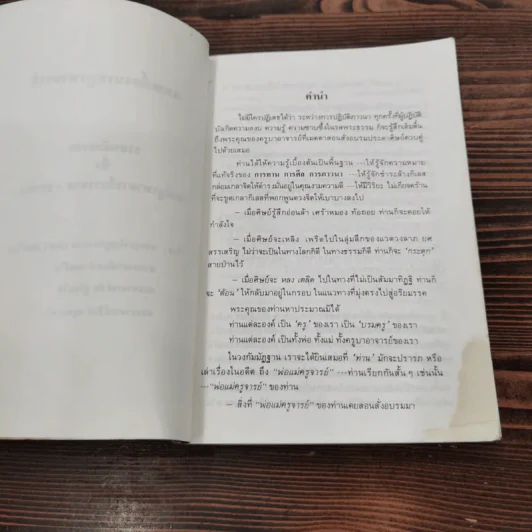 คำนำ
ไม่มีใครปฏิเสธได้ว่า ระหว่างการปฏิบัติภาวนา ทุกครั้งที่ผู้ปฏิบัติ
บังเกิดความสงบ ความรู้ ความซาบซึ้งในรสพระธรรม ก็จะรู้สึกเต็มตื้น
ถึงพระคุณของครูบาอาจารย์ที่เมตตาสอนสั่งอบรมประดาศิษย์ควบคู่
ไปด้วยเสมอ
ท่านได้ให้ความรู้เบื้องต้นเป็นพื้นฐาน ---ให้รู้จักความหมาย
ที่แท้จริงของ การทาน การศีล การภาวนา ---ให้รู้จักชำระล้างกิเลส
กล่อมเกลาจิตให้ดำรงมั่นอยู่ในคุณงามความดี ---ให้มีวิริยะ ไม่เกียจคร้าน
ที่จะขูดเกลากิเลสที่พอกพูนดวงจิตให้เบาบางลงไป
– เมื่อศิษย์รู้สึกอ่อนล้า เศร้าหมอง ท้อถอย ท่านก็จะคอยให้
กำลังใจ
– เมื่อศิษย์จะเหลิง เพริดไปในลุ่มลึกของแวดวงลาภ ยศ
สรรเสริญ ไม่ว่าจะเป็นในทางโลกก็ดี ในทางธรรมก็ดี ท่านก็จะ "กระตุก"
สายป่านไว้
– เมื่อศิษย์จะ หลง เตลิด ไปในทางที่ไม่เป็นสัมมาทิฏฐิ ท่านก็
จะ "ต้อน" ให้กลับมาอยู่ในกรอบ ในแนวทางที่มุ่งตรงไปสู่อริยมรรค
พระคุณของท่านหาประมาณมิได้
ท่านแต่ละองค์ เป็น "ครู" ของเรา เป็น "บรมครู" ของเรา
ท่านแต่ละองค์ เป็นทั้งพ่อ ทั้งแม่ ทั้งครูบาอาจารย์ของเรา
ในวงกัมมัฏฐาน เราจะได้ยินเสมอที่ "ท่าน" มักจะปรารภ หรือ
เล่าเรื่องในอดีต ถึง "พ่อแม่ครูจารย์" ---ท่านเรียกกันสั้น ๆ เช่นนั้น
---"พ่อแม่ครูจารย์" ของท่าน
– สิ่งที่ "พ่อแม่ครูจารย์" ของท่านเคยสอนสั่งอบรมมา